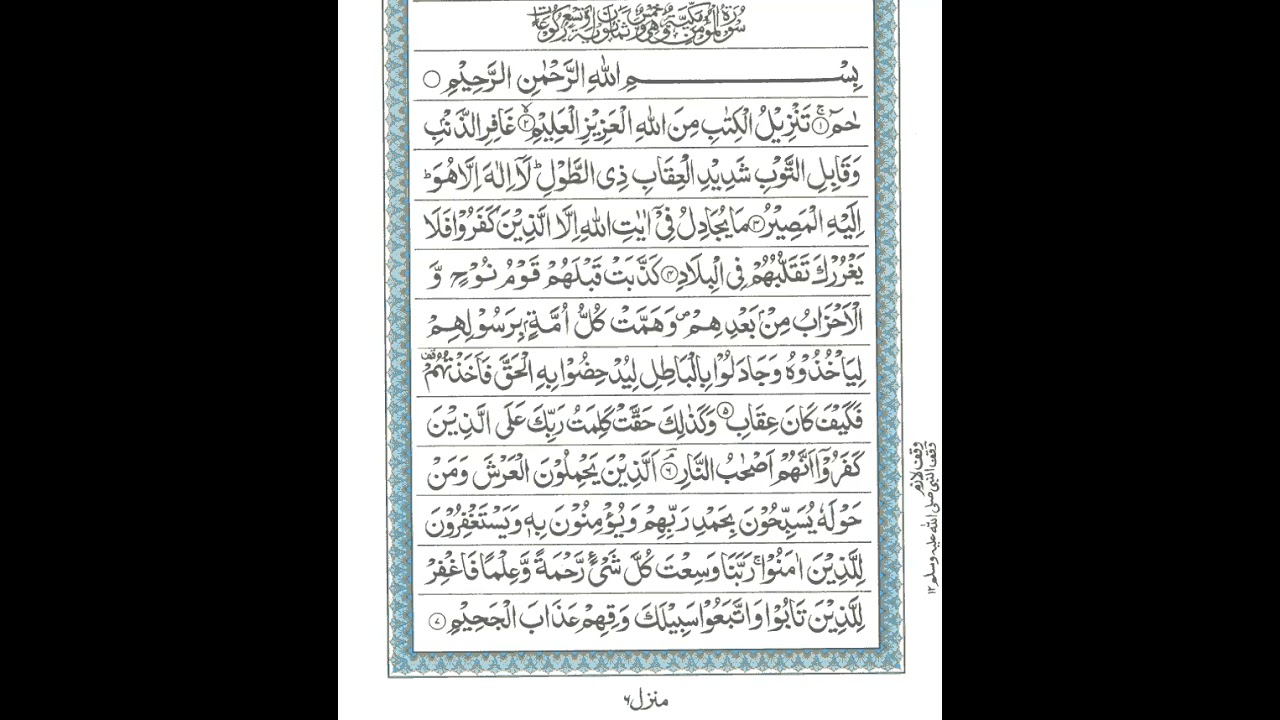 سُوْرَةُ الْمُؤْمِنِ مَكِّيَّةٌ وَّهِىَ خَمْسٌ وَّثَمَانُوْنَ اٰيَةً وَّتِسْعُ رُكُوْعَاتٍ
بِسْمِ اللّٰهِ الرَّحْمٰنِ الرَّحِيْمِ ○
حٰمٓ ۚ﴿۱﴾ تَنْزِيْلُ الْكِتٰبِ مِنَ اللّٰهِ الْعَزِيْزِ الْعَلِيْمِ ۙ﴿۲﴾ غَافِرِ الذَّنْۢبِ
وَقَابِلِ التَّوْبِ شَدِيْدِ الْعِقَابِ ذِى الطَّوْلِ ؕ لَاۤ اِلٰهَ اِلَّا هُوَ ؕ
اِلَيْهِ الْمَصِيْرُ ﴿۳﴾ مَا يُجَادِلُ فِىْۤ اٰيٰتِ اللّٰهِ اِلَّا الَّذِيْنَ كَفَرُوْا فَلَا
يَغْرُرْكَ تَقَلُّبُهُمْ فِى الْبِلَادِ ﴿۴﴾ كَذَّبَتْ قَبْلَهُمْ قَوْمُ نُوْحٍ وَّ
الْاَحْزَابُ مِنْۢ بَعْدِهِمْ ۪ وَهَمَّتْ كُلُّ اُمَّةٍۢ بِرَسُوْلِهِمْ
لِيَاْخُذُوْهُ وَجَادَلُوْا بِالْبَاطِلِ لِيُدْحِضُوْا بِهِ الْحَقَّ فَاَخَذْتُهُمْ ۟
فَكَيْفَ كَانَ عِقَابِ ﴿۵﴾ وَكَذٰلِكَ حَقَّتْ كَلِمَتُ رَبِّكَ عَلَى الَّذِيْنَ
كَفَرُوْۤا اَنَّهُمْ اَصْحٰبُ النَّارِ ۘ﴿۶﴾ اَلَّذِيْنَ يَحْمِلُوْنَ الْعَرْشَ وَمَنْ
حَوْلَهٗ يُسَبِّحُوْنَ بِحَمْدِ رَبِّهِمْ وَيُؤْمِنُوْنَ بِهٖ وَيَسْتَغْفِرُوْنَ
لِلَّذِيْنَ اٰمَنُوْا ۚ رَبَّنَا وَسِعْتَ كُلَّ شَىْءٍ رَّحْمَةً وَّعِلْمًا فَاغْفِرْ
لِلَّذِيْنَ تَابُوْا وَاتَّبَعُوْا سَبِيْلَكَ وَقِهِمْ عَذَابَ الْجَحِيْمِ ﴿۷﴾
وقف لازم
وقف النبی صلی اللہ علیہ وسلم ۱۲
منزل ۶